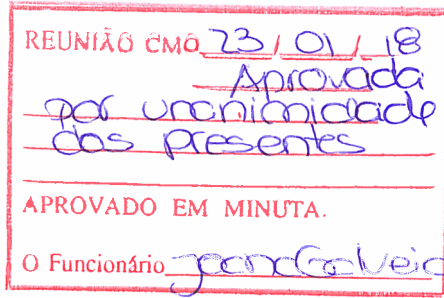 REUNIÃO CMO 23 / 01 / 18
Aprovada
por unanimidade
dos presentes
APROVADO EM MINUTA.
O Funcionário Joana Galveia